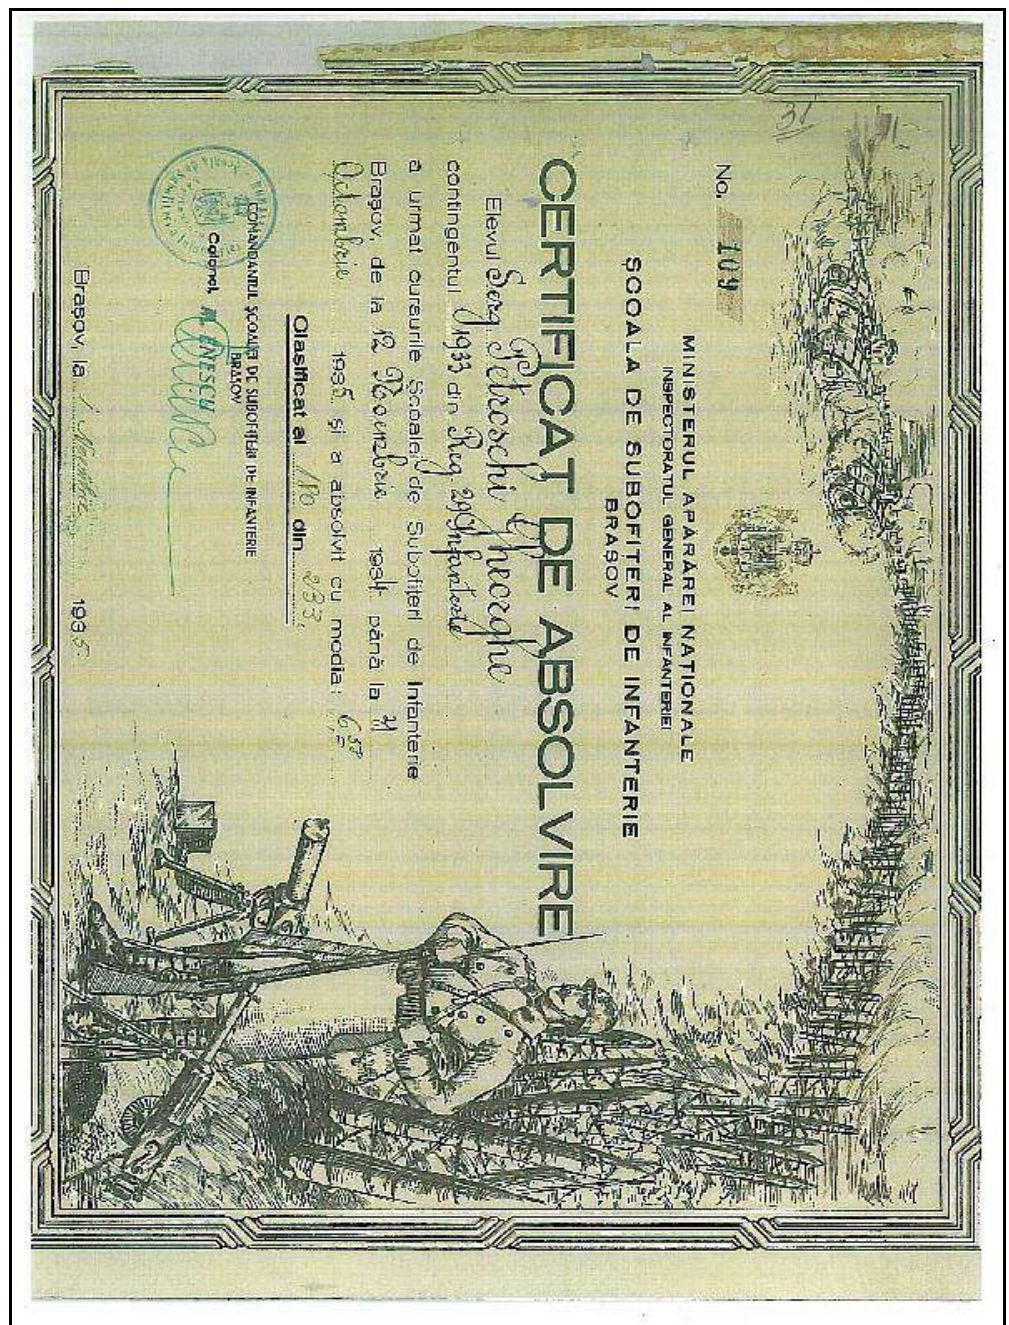 31
No. 109
MINISTERUL APĂRĂREI NAȚIONALE
INSPECTORATUL GENERAL AL INFANTERIEI
ȘCOALA DE SUBOFIȚERI DE INFANTERIE
BRAȘOV
CERTIFICAT DE ABSOLVIRE
Elevul Serg. Petroschi Gheorghe
contingentul 1933 din Reg. 29 Infanterie
a urmat cursurile Școalei de Subofițeri de Infanterie
Brașov, de la 12 Noembrie 1934 până la 31
Octombrie 1935 și a absolvit cu media: 6,58
Clasificat al 180 din 283.
COMANDANTUL ȘCOALEI DE SUBOFIȚERI DE INFANTERIE
BRAȘOV
Colonel,
Brașov, la 1 Noembrie 1935.